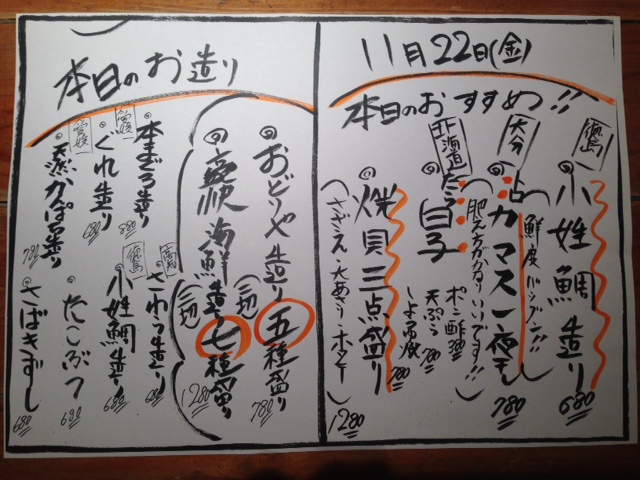 11月22日(金)
本日のおすすめ!!
徳島
小姓鯛造り
680
(鮮度バツグン!!)
大分
カマス一夜干し
780
(肥えてかなりいいです!!)
北海道
たら白子
ポン酢
天ぷら 780
780
焼貝三点盛り
(さざえ・大あさり・ホタテ)
1280
本日のお造り
おどりや造り五種盛り
(三切)
780
海鮮造り七種盛り
(三切)
1280
愛媛
本まぐろ造り
880
愛媛
ぐれ造り
680
天然かんぱち造り
780
さわら造り
680
徳島
小姓鯛造り
680
たこぶつ
680
さばきずし
680